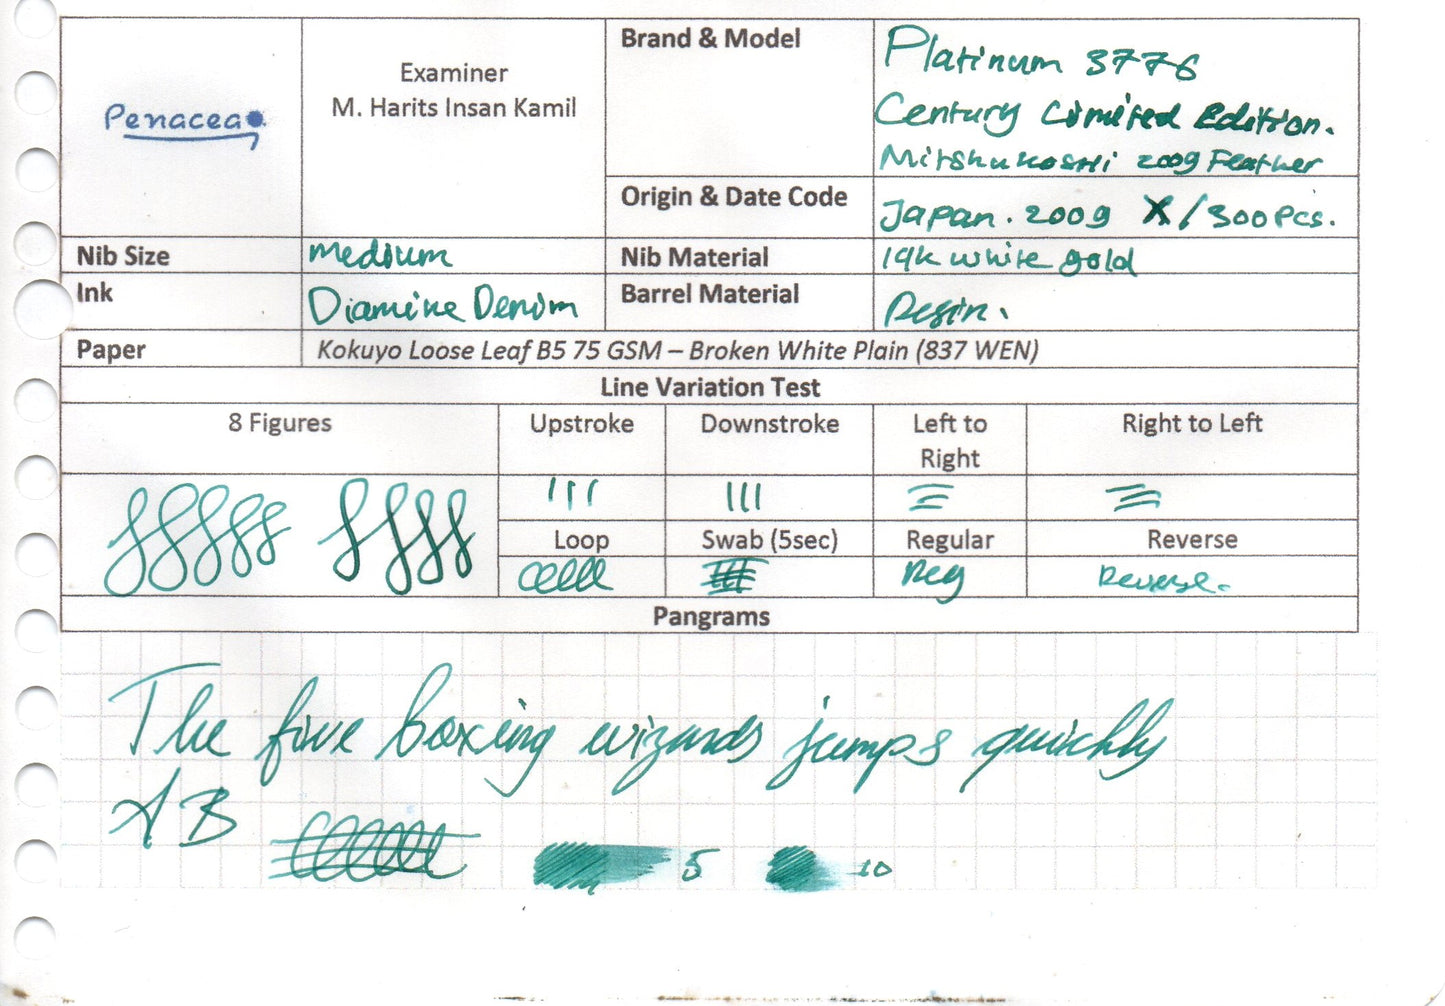 Penacea
Examiner
M. Harits Insan Kamil
Brand & Model
Platinum 3776
Century Limited Edition.
Mitshukoshi 2009 Feather
Origin & Date Code
Japan. 2009 X/300pcs.
Nib Size
Medium
Nib Material
14k white gold
Ink
Diamine Denim
Barrel Material
Resin.
Paper
Kokuyo Loose Leaf B5 75 GSM – Broken White Plain (837 WEN)
Line Variation Test
8 Figures
Upstroke
Downstroke
Left to
Right
Right to Left
Loop
Swab (5sec)
Regular
Reverse
Reg
Reverse.
Pangrams
The five boxing wizards jumps quickly
A B
5
10